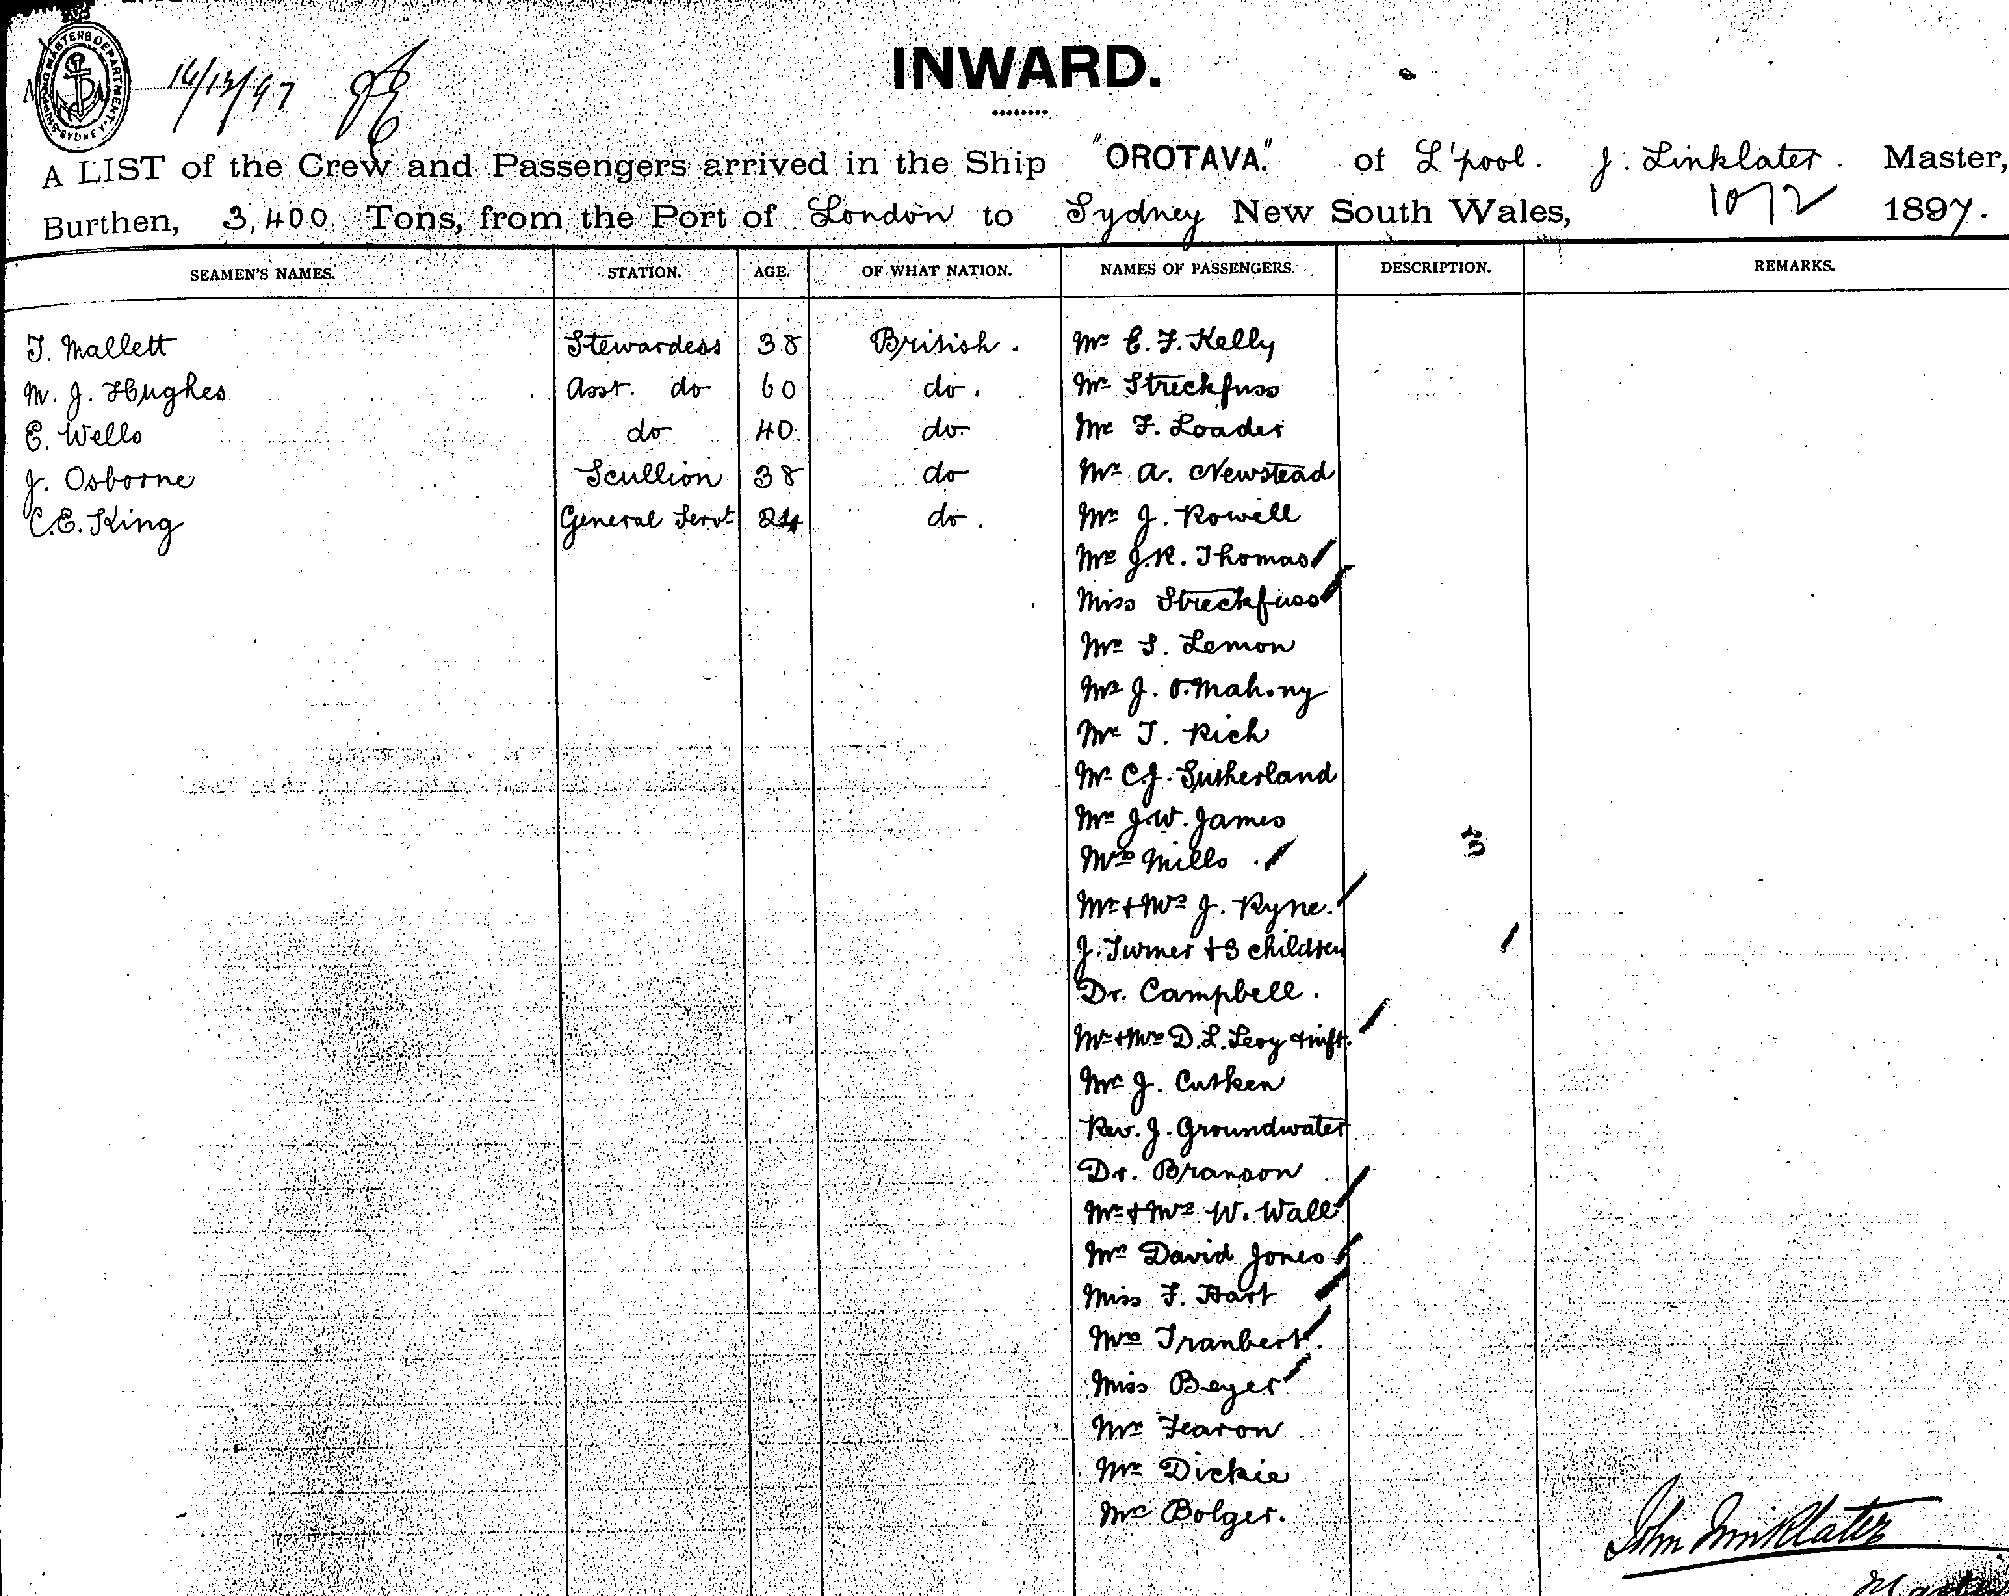 SHIPPING MASTERS DEPARTMENT SYDNEY
14/12/97
INWARD.
A LIST of the Crew and Passengers arrived in the Ship "OROTAVA." of L'pool. J. Linklater. Master,
Burthen, 3,400 Tons, from the Port of London to Sydney New South Wales, 1072 1897.
SEAMEN'S NAMES. STATION. AGE. OF WHAT NATION. NAMES OF PASSENGERS. DESCRIPTION. REMARKS.
J. Mallett Stewardess 38 British. Mr E. F. Kelly
M. J. Hughes Asst. do 60 do. Mr Streckfuss
E. Wells do 40 do. Mr F. Loader
J. Osborne Scullion 38 do Mr A. Newstead
C. E. King General Servt 24 do. Mr J. Rowell
Mr J. R. Thomas
Miss Streckfuss
Mr S. Lemon
Mr J. O.Mahony
Mr T. Rich
Mr C. J. Sutherland
Mr J. W. James
Mrs Mills
Mr + Mrs J. Ryne.
J. Turner + 3 children
Dr. Campbell.
Mr + Mrs D. L. Levy + inft.
Mr J. Cutken
Rev. J. Groundwater
Dr. Branson
Mr + Mrs W. Wall
Mr David Jones
Miss F. Hart
Mrs Tranbert.
Miss Beyer
Mr Fearon
Mr Dickie
Mr Bolger.
John Linklater
Master